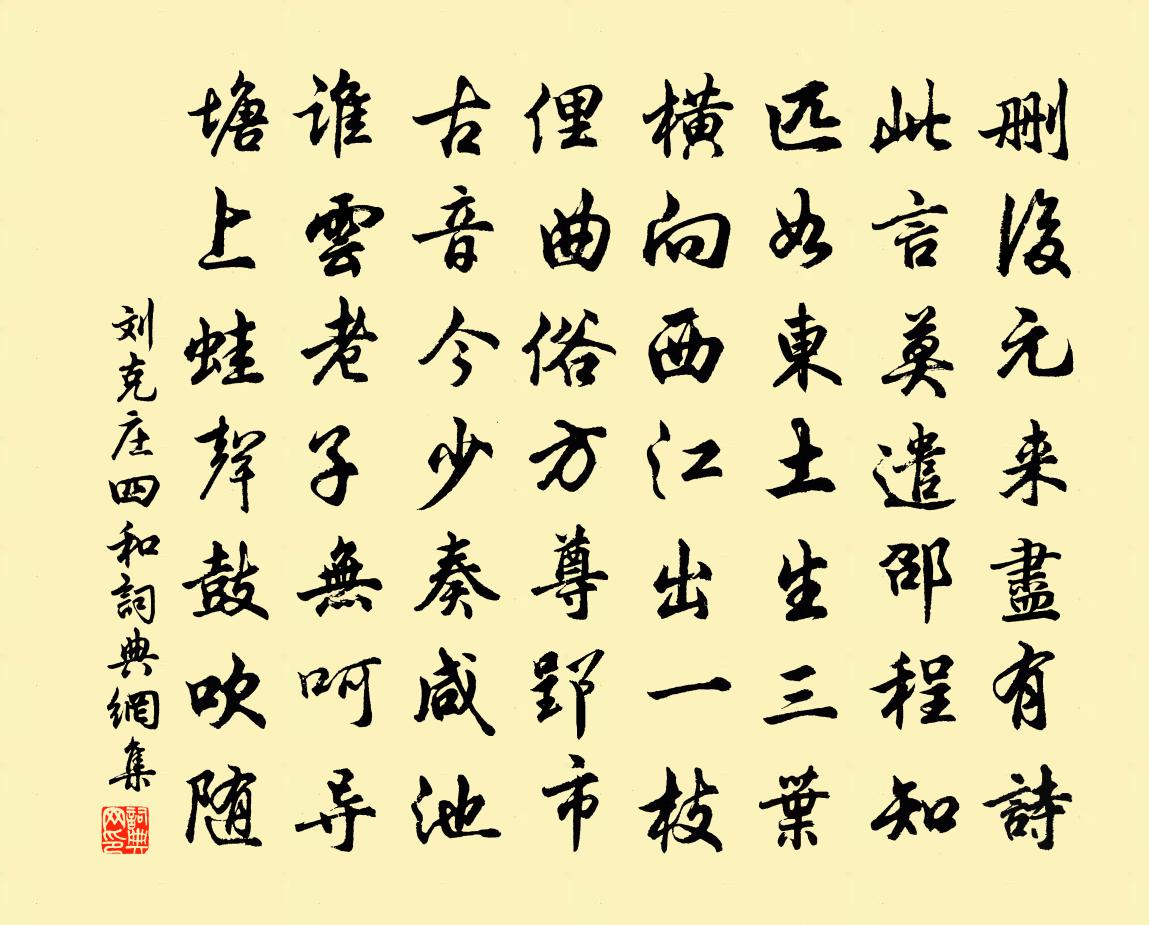 删後元来盡有詩
此言莫遣邵程知
匹如東土生三葉
横向西江出一枝
俚曲俗方尊郢市
古音今少奏咸池
誰雲老子無呵导
塘上蛙聲鼓吹随
刘克庄四和詞典網集
詞典网印